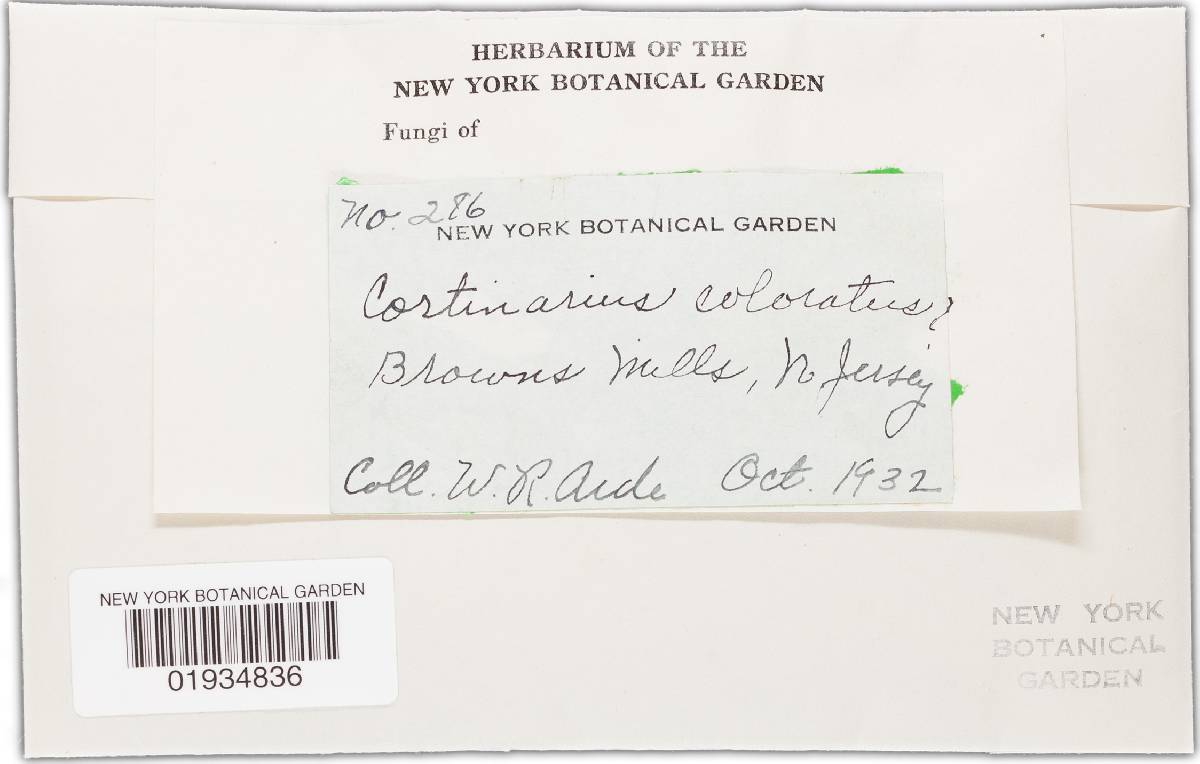 HERBARIUM OF THE
NEW YORK BOTANICAL GARDEN
Fungi of
No. 286
NEW YORK BOTANICAL GARDEN
Cortinarius coloratus?
Browns Mills, N. Jersey
Coll. W. R. Oct. 1932
NEW YORK BOTANICAL GARDEN
01934836
NEW YORK
BOTANICAL
GARDEN